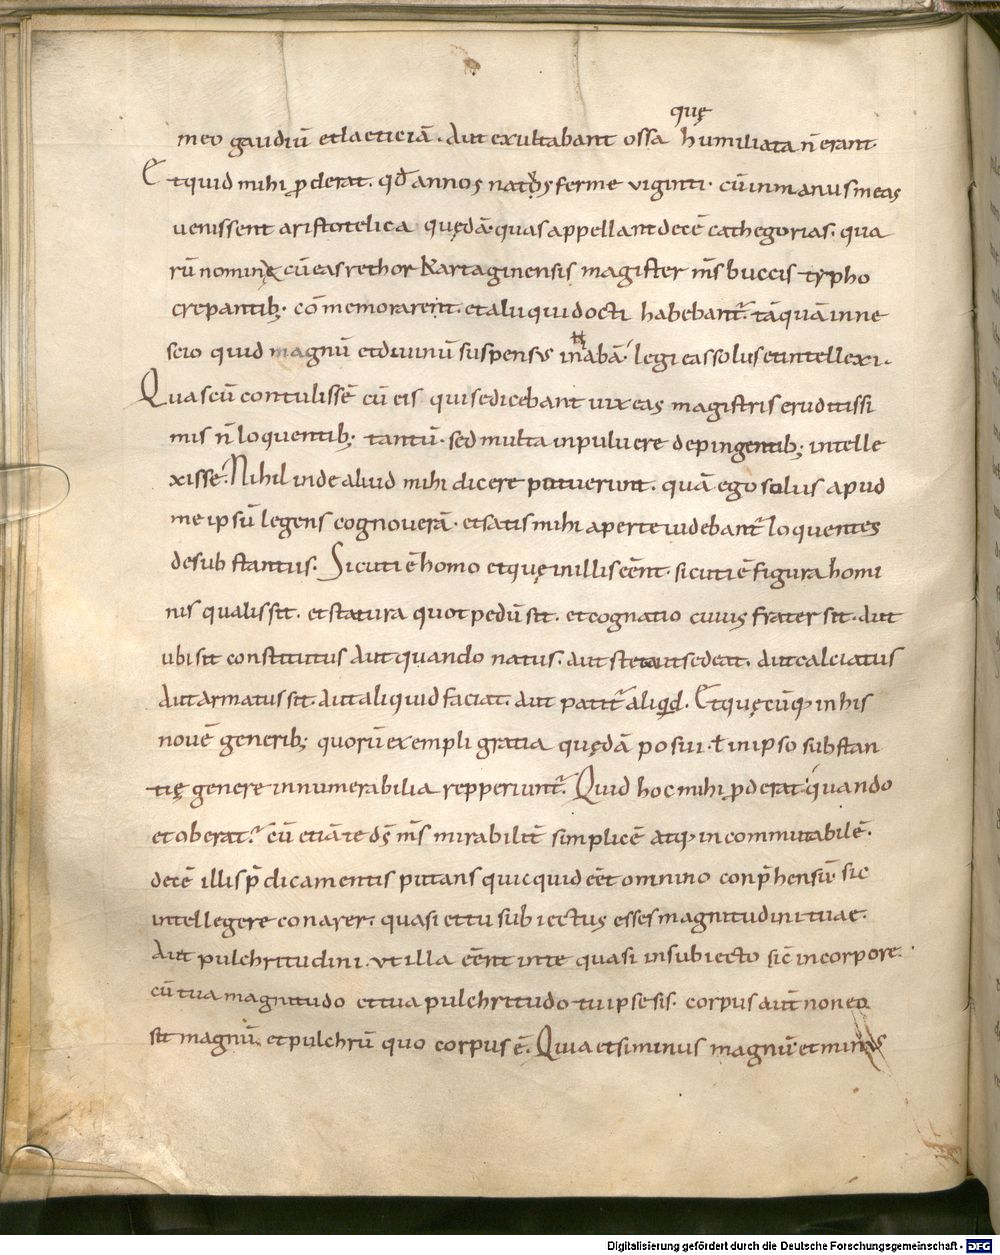 quę
meo gaudiū et laeticiā . Aut exultabant ossa humiliata n̄ erant .
Et quid mihi ꝓderat . qđ annos natus ferme viginti . cū in manus meas
venissent aristotelica quędā . quas appellant decē cathegorias . qua
rū nomine cū eas rethor Kartaginensis magister m̄s buccis typho
crepantib; . cōmemorarent . et alii qui docti habebant᷑ . tāquā in ne
scio quid magnū et divinū suspensus inhiabā . legi ea solus et intellexi .
Quas cū contulissē cū eis qui se dicebant vix eas magistris eruditissi
mis n̄ loquentib; tantū . sed multa in puluere depingentib; intelle
xisse . Nihil inde aliud mihi dicere potuerunt . quā ego solus apud
me ipsū legens cognouerā . et satis mihi aperte videbant᷑ loquentes
de substantiis . Sicuti ē homo et quę in illis eēnt . sicuti ē figura homi
nis qualis sit . et statura quot pedū sit . et cognatio cuius frater sit . aut
ubi sit constitutus aut quando natus . aut stet aut sedeat . aut calciatus
aut armatus sit . aut aliquid faciat . aut patit᷑ aliqd . Et quęcūq; in his
novē generib; quorū exempli gratia quędā posui . ł in ipso substan
tię genere innumerabilia repperiunt᷑ . Quid hoc mihi ꝓderat quando
et oberat . cū etiā te ds̄ m̄s mirabilit̄ simplicē atq; incommutabilē .
decē illis p̄dicamentis putans quicquid eēt omnino conp̄hensū sic
intellegere conarer . quasi et tu subiectus esses magnitudini tuae .
Aut pulchritudini . ut illa eēnt in te quasi in subiecto sic̄ in corpore .
cū tua magnitudo et tua pulchritudo tu ipse sis . corpus aut̄ non eo
sit magnū et pulchrū quo corpus ē . Quia etsi minus magnū et minus
Digitalisierung gefördert durch die Deutsche Forschungsgemeinschaft - DFG